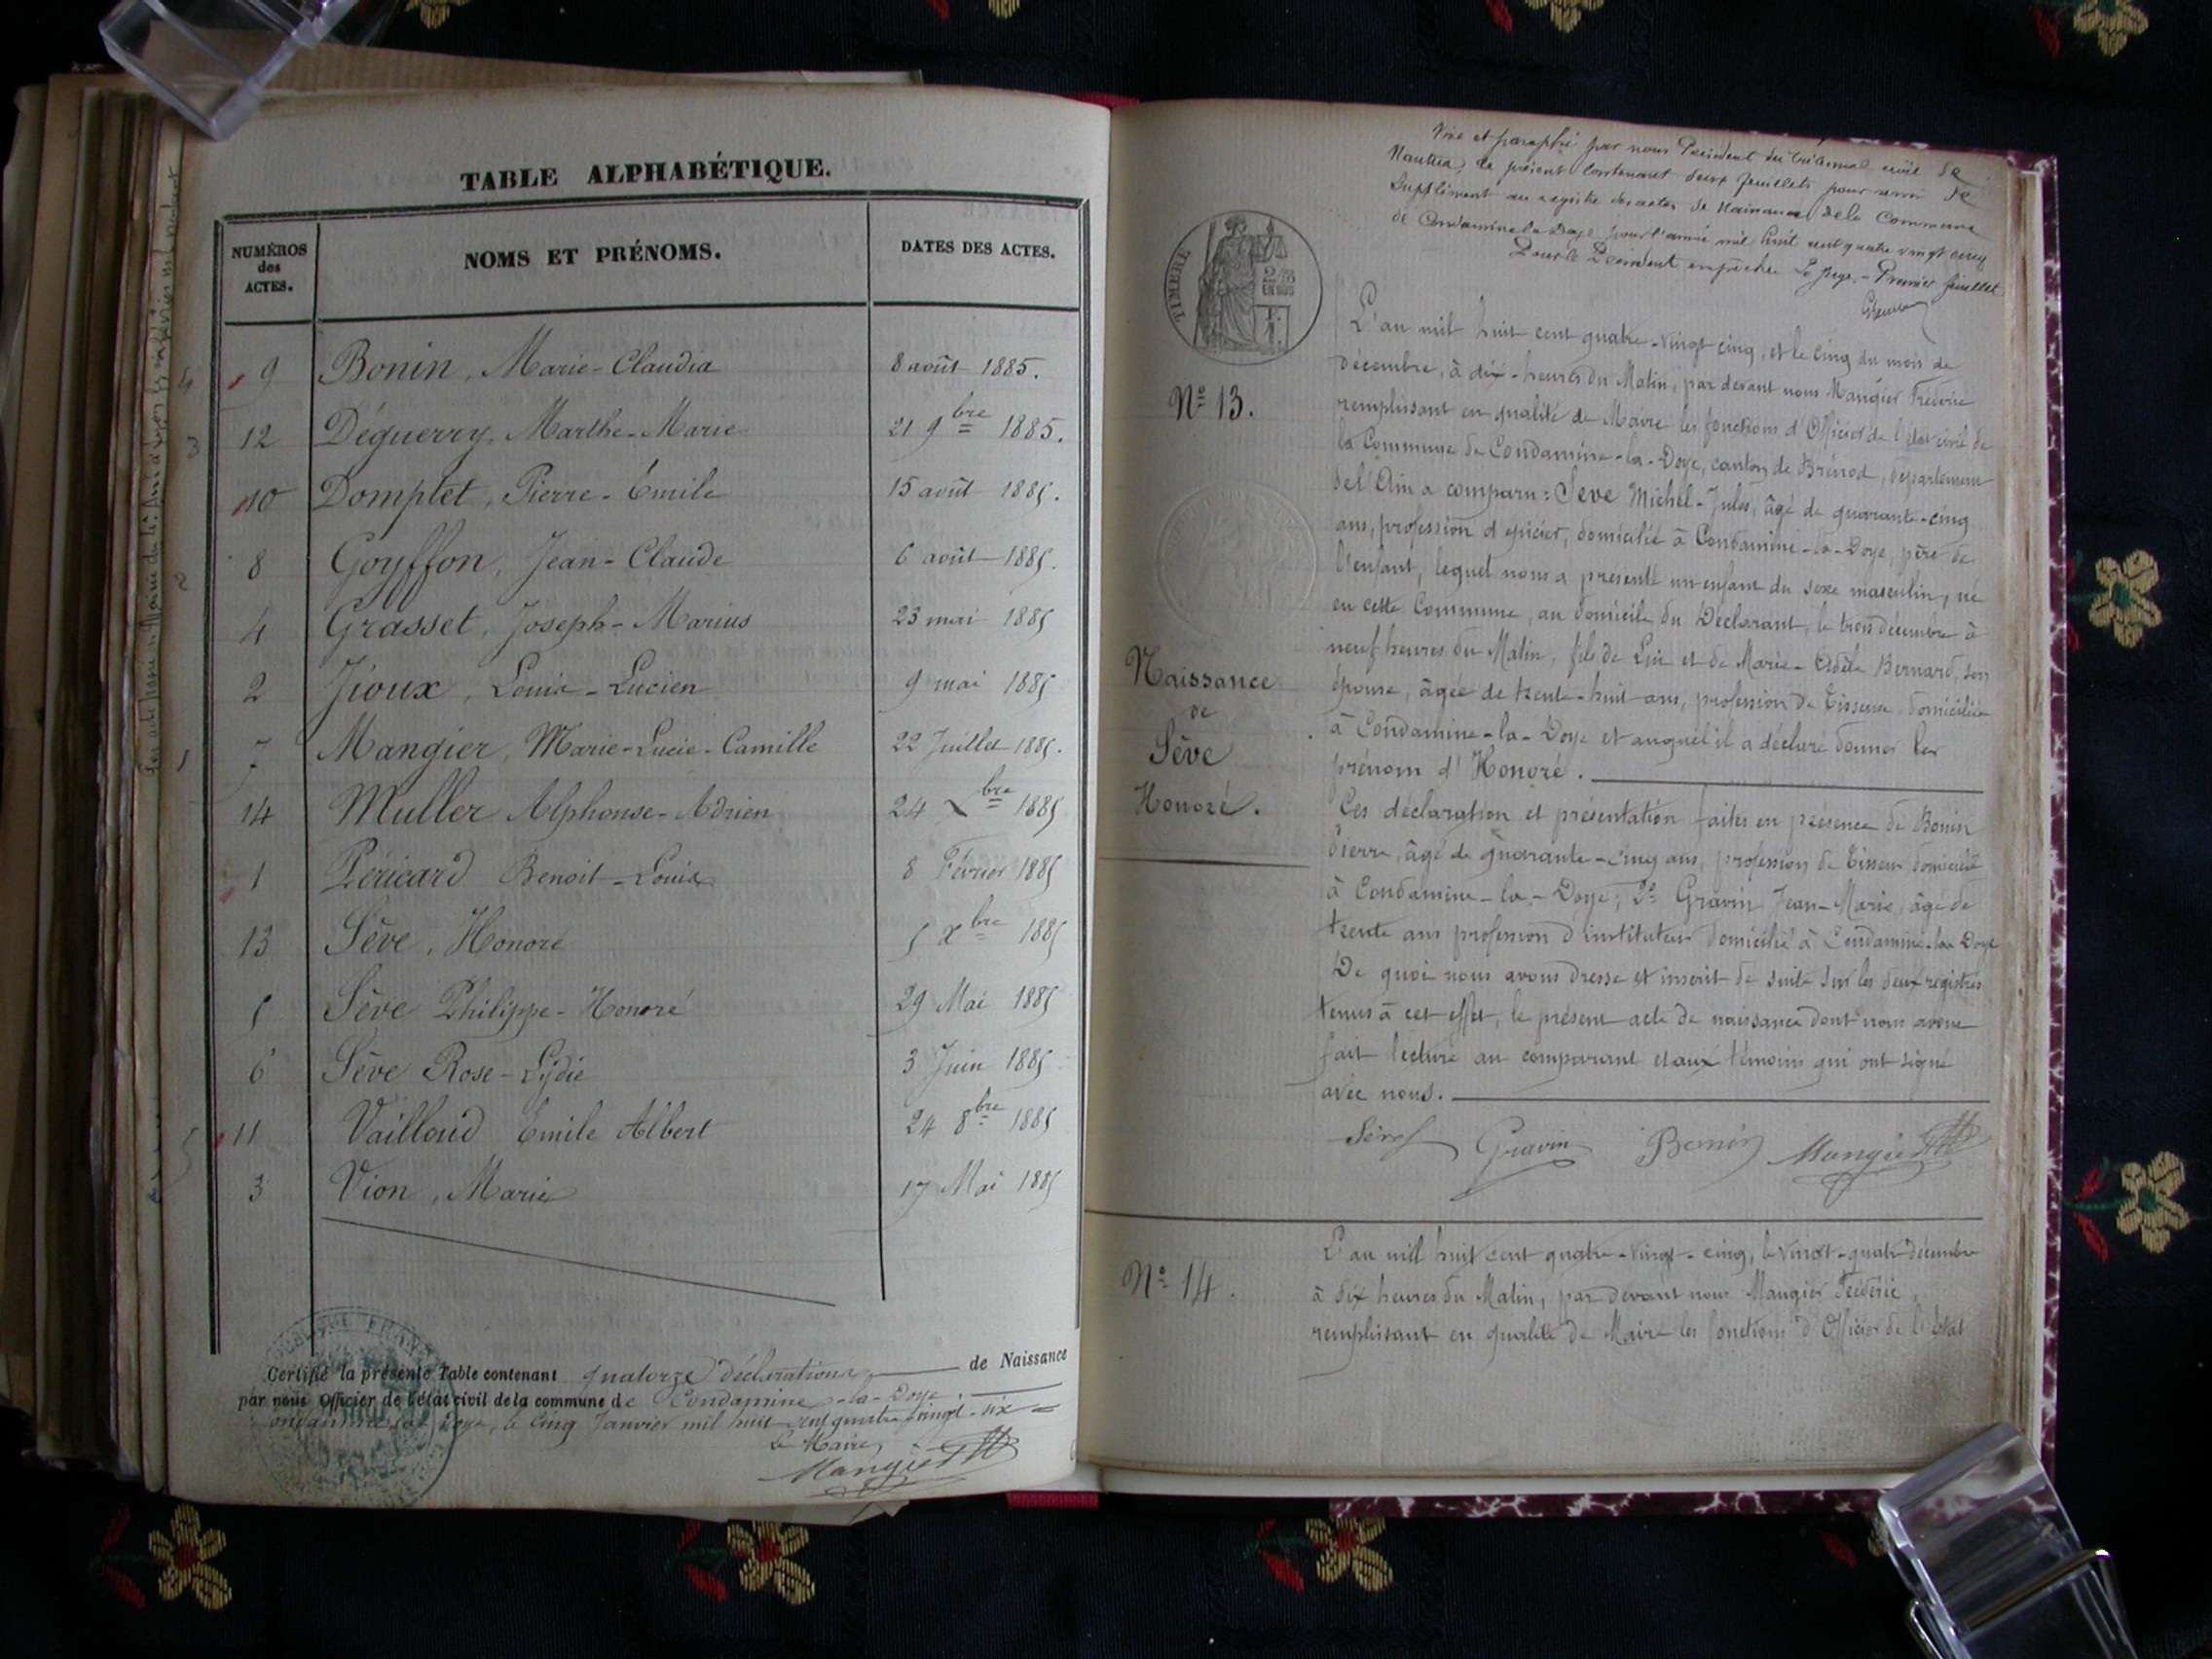 TABLE ALPHABÉTIQUE.
NUMÉROS des ACTES. NOMS ET PRÉNOMS. DATES DES ACTES.
9 Bonin, Marie-Claudia 8 août 1885.
12 Déguerry, Marthe-Marie 21 9bre 1885.
10 Domptet, Pierre-Émile 15 août 1885.
8 Goyffon, Jean-Claude 6 août 1885.
4 Grasset, Joseph-Marius 23 mai 1885
2 Jioux, Louis-Lucien 9 mai 1885
7 Mangier, Marie-Lucie-Camille 22 Juillet 1885.
14 Muller Alphonse-Adrien 24 Xbre 1885
1 Péricard Benoit-Louis 8 Février 1885
13 Sève, Honoré 5 Xbre 1885
5 Sève Philippe-Honoré 29 Mai 1885
6 Sève Rose-Lydie 3 Juin 1885
11 Vailloud Emile Albert 24 8bre 1885
3 Vion, Marie 17 Mai 1885
Certifié la présente Table contenant quatorze déclarations de Naissance
par nous Officier de l'état civil de la commune de Condamine-la-Doye.
Condamine la Doye, le cinq Janvier mil huit cent quatre vingt-six
Le Maire,
Mangier
Visé et paraphé par nous Président du tribunal civil de
Nantua, le présent contenant deux feuillets pour servir de
Supplément au registre des actes de Naissance de la Commune
de Condamine la Doye pour l'année mil huit cent quatre vingt cinq
Pour le Président empêché Le Juge. - Premier feuillet
TIMBRE
2/10 EN SUS
No 13.
Naissance
de
Sève
Honoré.
L'an mil huit cent quatre-vingt cinq, et le cinq du mois de
Décembre, à dix-heures du Matin, par devant nous Mangier Fréderic
remplissant en qualité de Maire les fonctions d'Officier de l'état civil de
la Commune de Condamine-la-Doye, canton de Brénod, département
de l'Ain a comparu: Seve Michel-Jules, âgé de quarante-cinq
ans, profession d'épicier, domicilié à Condamine-la-Doye, père de
l'enfant, lequel nous a présenté un enfant du sexe masculin, né
en cette Commune, au domicile du Déclarant, le trois décembre à
neuf heures du Matin, fils de Lui et de Marie-Adèle Bernard, son
épouse, âgée de trente-huit ans, profession de Tisseuse domiciliée
à Condamine-la-Doye et auquel il a déclaré donner les
prénom d'Honoré.
Ces déclaration et présentation faites en présence de Bonin
Pierre, âgé de quarante-cinq ans, profession de Tisseur domicilié
à Condamine-la-Doye; 2° Gravin Jean-Marie, âgé de
trente ans profession d'instituteur domicilié à Condamine-la-Doye
De quoi nous avons dressé et inscrit de suite sur les deux registres
tenus à cet effet, le présent acte de naissance dont nous avons
fait lecture au comparant et aux témoins qui ont signé
avec nous.
Sève Gravin Bonin Mangier
No 14.
L'an mil huit cent quatre-vingt-cinq, le vingt-quatre décembre
à dix heures du Matin, par devant nous Mangier Fréderic,
remplissant en qualité de Maire les fonctions d'Officier de l'état